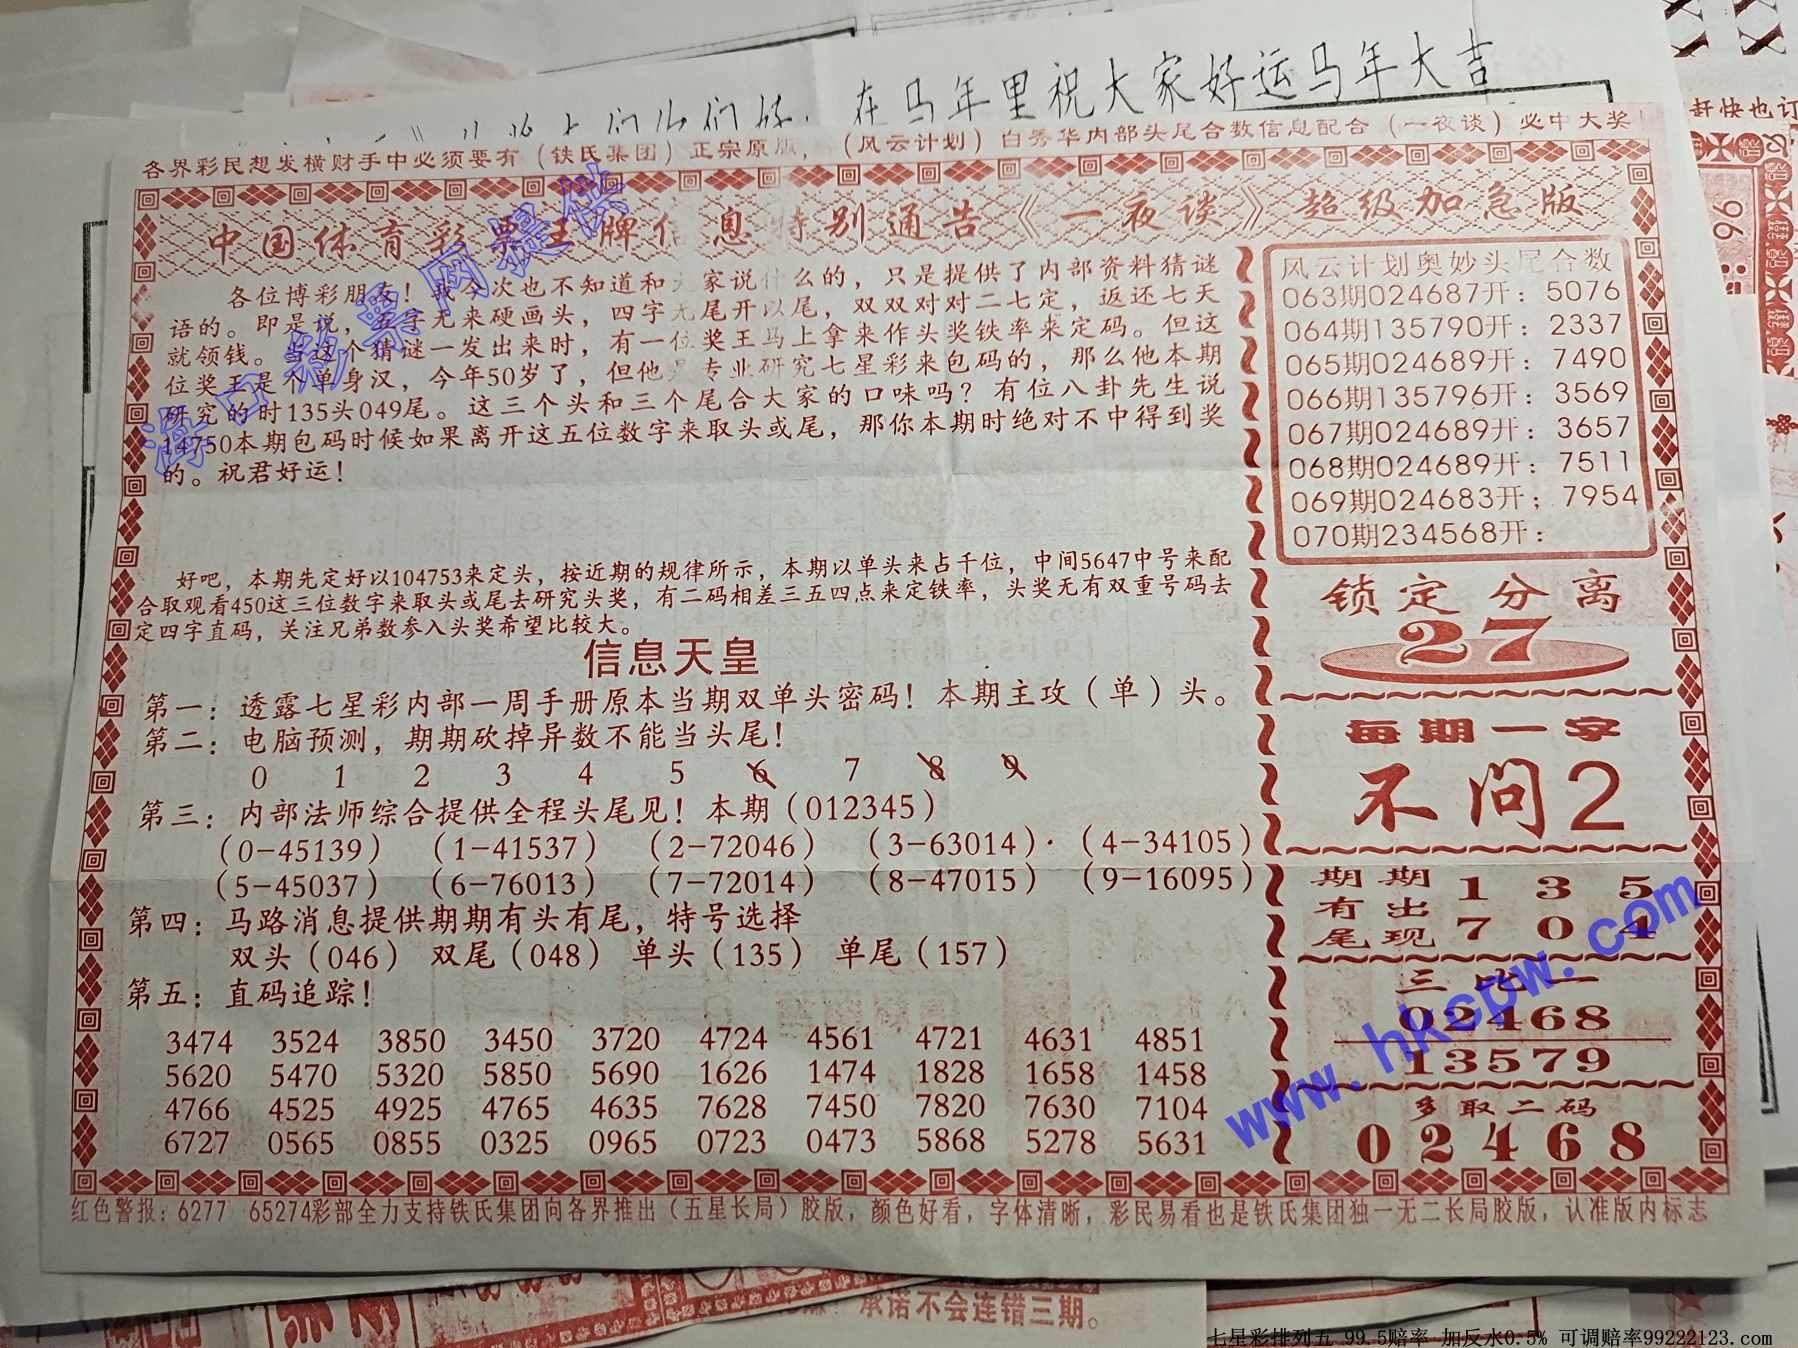 在马年里祝大家好运马年大吉
赶快也订
各界彩民想发横财手中必须要有（铁氏集团）正宗原版，（风云计划）白秀华内部头尾合数信息配合（一夜谈）必中大奖！
中国体育彩票王牌信息特别通告《一夜谈》超级加急版
各位博彩朋友！我今次也不知道和大家说什么的，只是提供了内部资料猜谜
语的。即是说，五字无来硬画头，四字无尾开以尾，双双对对二七定，返还七天
就领钱。当这个猜谜一发出来时，有一位奖王马上拿来作头奖铁率来定码。但这
位奖王是个单身汉，今年50岁了，但他是专业研究七星彩来包码的，那么他本期
研究的时135头049尾。这三个头和三个尾合大家的口味吗？有位八卦先生说
14750本期包码时候如果离开这五位数字来取头或尾，那你本期时绝对不中得到奖
的。祝君好运！
好吧，本期先定好以104753来定头，按近期的规律所示，本期以单头来占千位，中间5647中号来配
合取观看450这三位数字来取头或尾去研究头奖，有二码相差三五四点来定铁率，头奖无有双重号码去
定四字直码，关注兄弟数参入头奖希望比较大。
信息天皇
第一：透露七星彩内部一周手册原本当期双单头密码！本期主攻（单）头。
第二：电脑预测，期期砍掉异数不能当头尾！
0 1 2 3 4 5 6 7 8 9
第三：内部法师综合提供全程头尾见！本期（012345）
（0-45139） （1-41537） （2-72046） （3-63014）· （4-34105）
（5-45037） （6-76013） （7-72014） （8-47015） （9-16095）
第四：马路消息提供期期有头有尾，特号选择
双头（046） 双尾（048） 单头（135） 单尾（157）
第五：直码追踪！
3474 3524 3850 3450 3720 4724 4561 4721 4631 4851
5620 5470 5320 5850 5690 1626 1474 1828 1658 1458
4766 4525 4925 4765 4635 7628 7450 7820 7630 7104
6727 0565 0855 0325 0965 0723 0473 5868 5278 5631
风云计划奥妙头尾合数
063期024687开：5076
064期135790开：2337
065期024689开：7490
066期135796开：3569
067期024689开：3657
068期024689开：7511
069期024683开；7954
070期234568开：
锁定分离
27
每期一字
不问2
期期 1 3 5
有出
尾现 7 0 4
三吃一
02468
13579
多取二码
02468
红色警报：6277 65274彩部全力支持铁氏集团向各界推出（五星长局）胶版，颜色好看，字体清晰，彩民易看也是铁氏集团独一无二长局胶版，认准版内标志
承诺不会连错三期。
海口彩票网提供
www.hkcpw.com
七星彩排列五 99.5赔率 加反水0.5% 可调赔率99222123.com